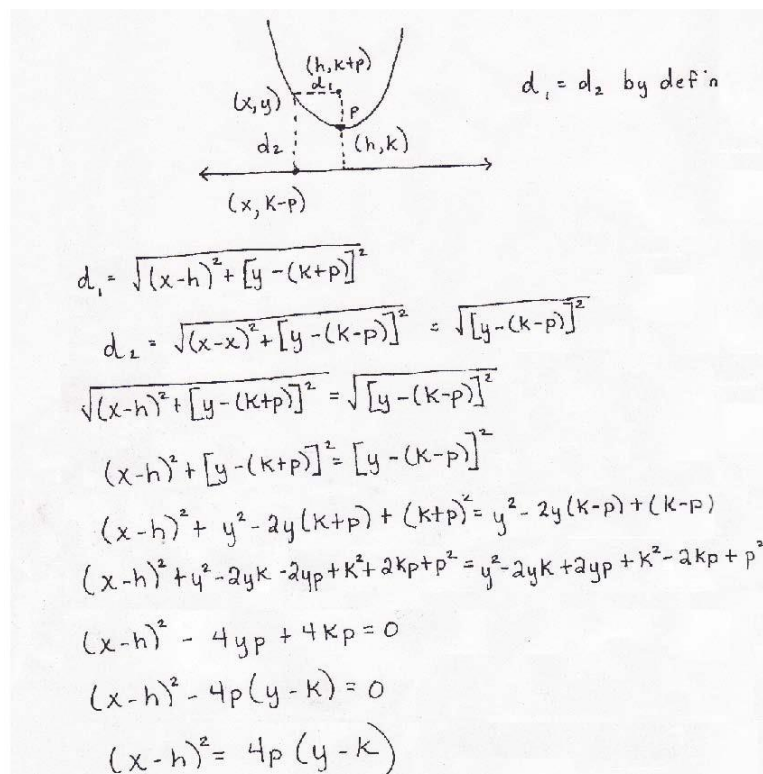 (h, k+p)
d₁ = d₂ by def'n
d₁
(x, y)
p
d₂
(h, k)
(x, k-p)
d₁ = √(x-h)² + [y-(k+p)]²
d₂ = √(x-x)² + [y-(k-p)]² = √[y-(k-p)]²
√(x-h)² + [y-(k+p)]² = √[y-(k-p)]²
(x-h)² + [y-(k+p)]² = [y-(k-p)]²
(x-h)² + y² - 2y(k+p) + (k+p)² = y² - 2y(k-p) + (k-p)
(x-h)² + y² - 2yk - 2yp + k² + 2kp + p² = y² - 2yk + 2yp + k² - 2kp + p²
(x-h)² - 4yp + 4kp = 0
(x-h)² - 4p(y-k) = 0
(x-h)² = 4p(y-k)